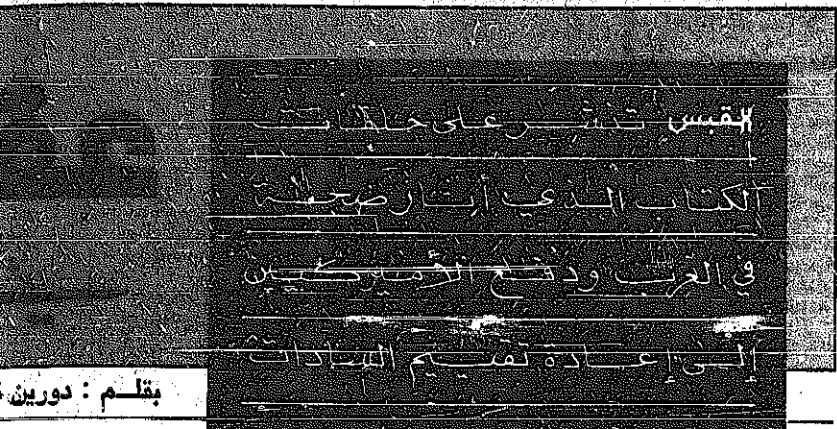 القبس تنشر على حلقات
الكتاب الذي أثار ضجة
في الغرب ودفع الأميركيين
إلى إعادة تقييم السادات
بقلم : دورين